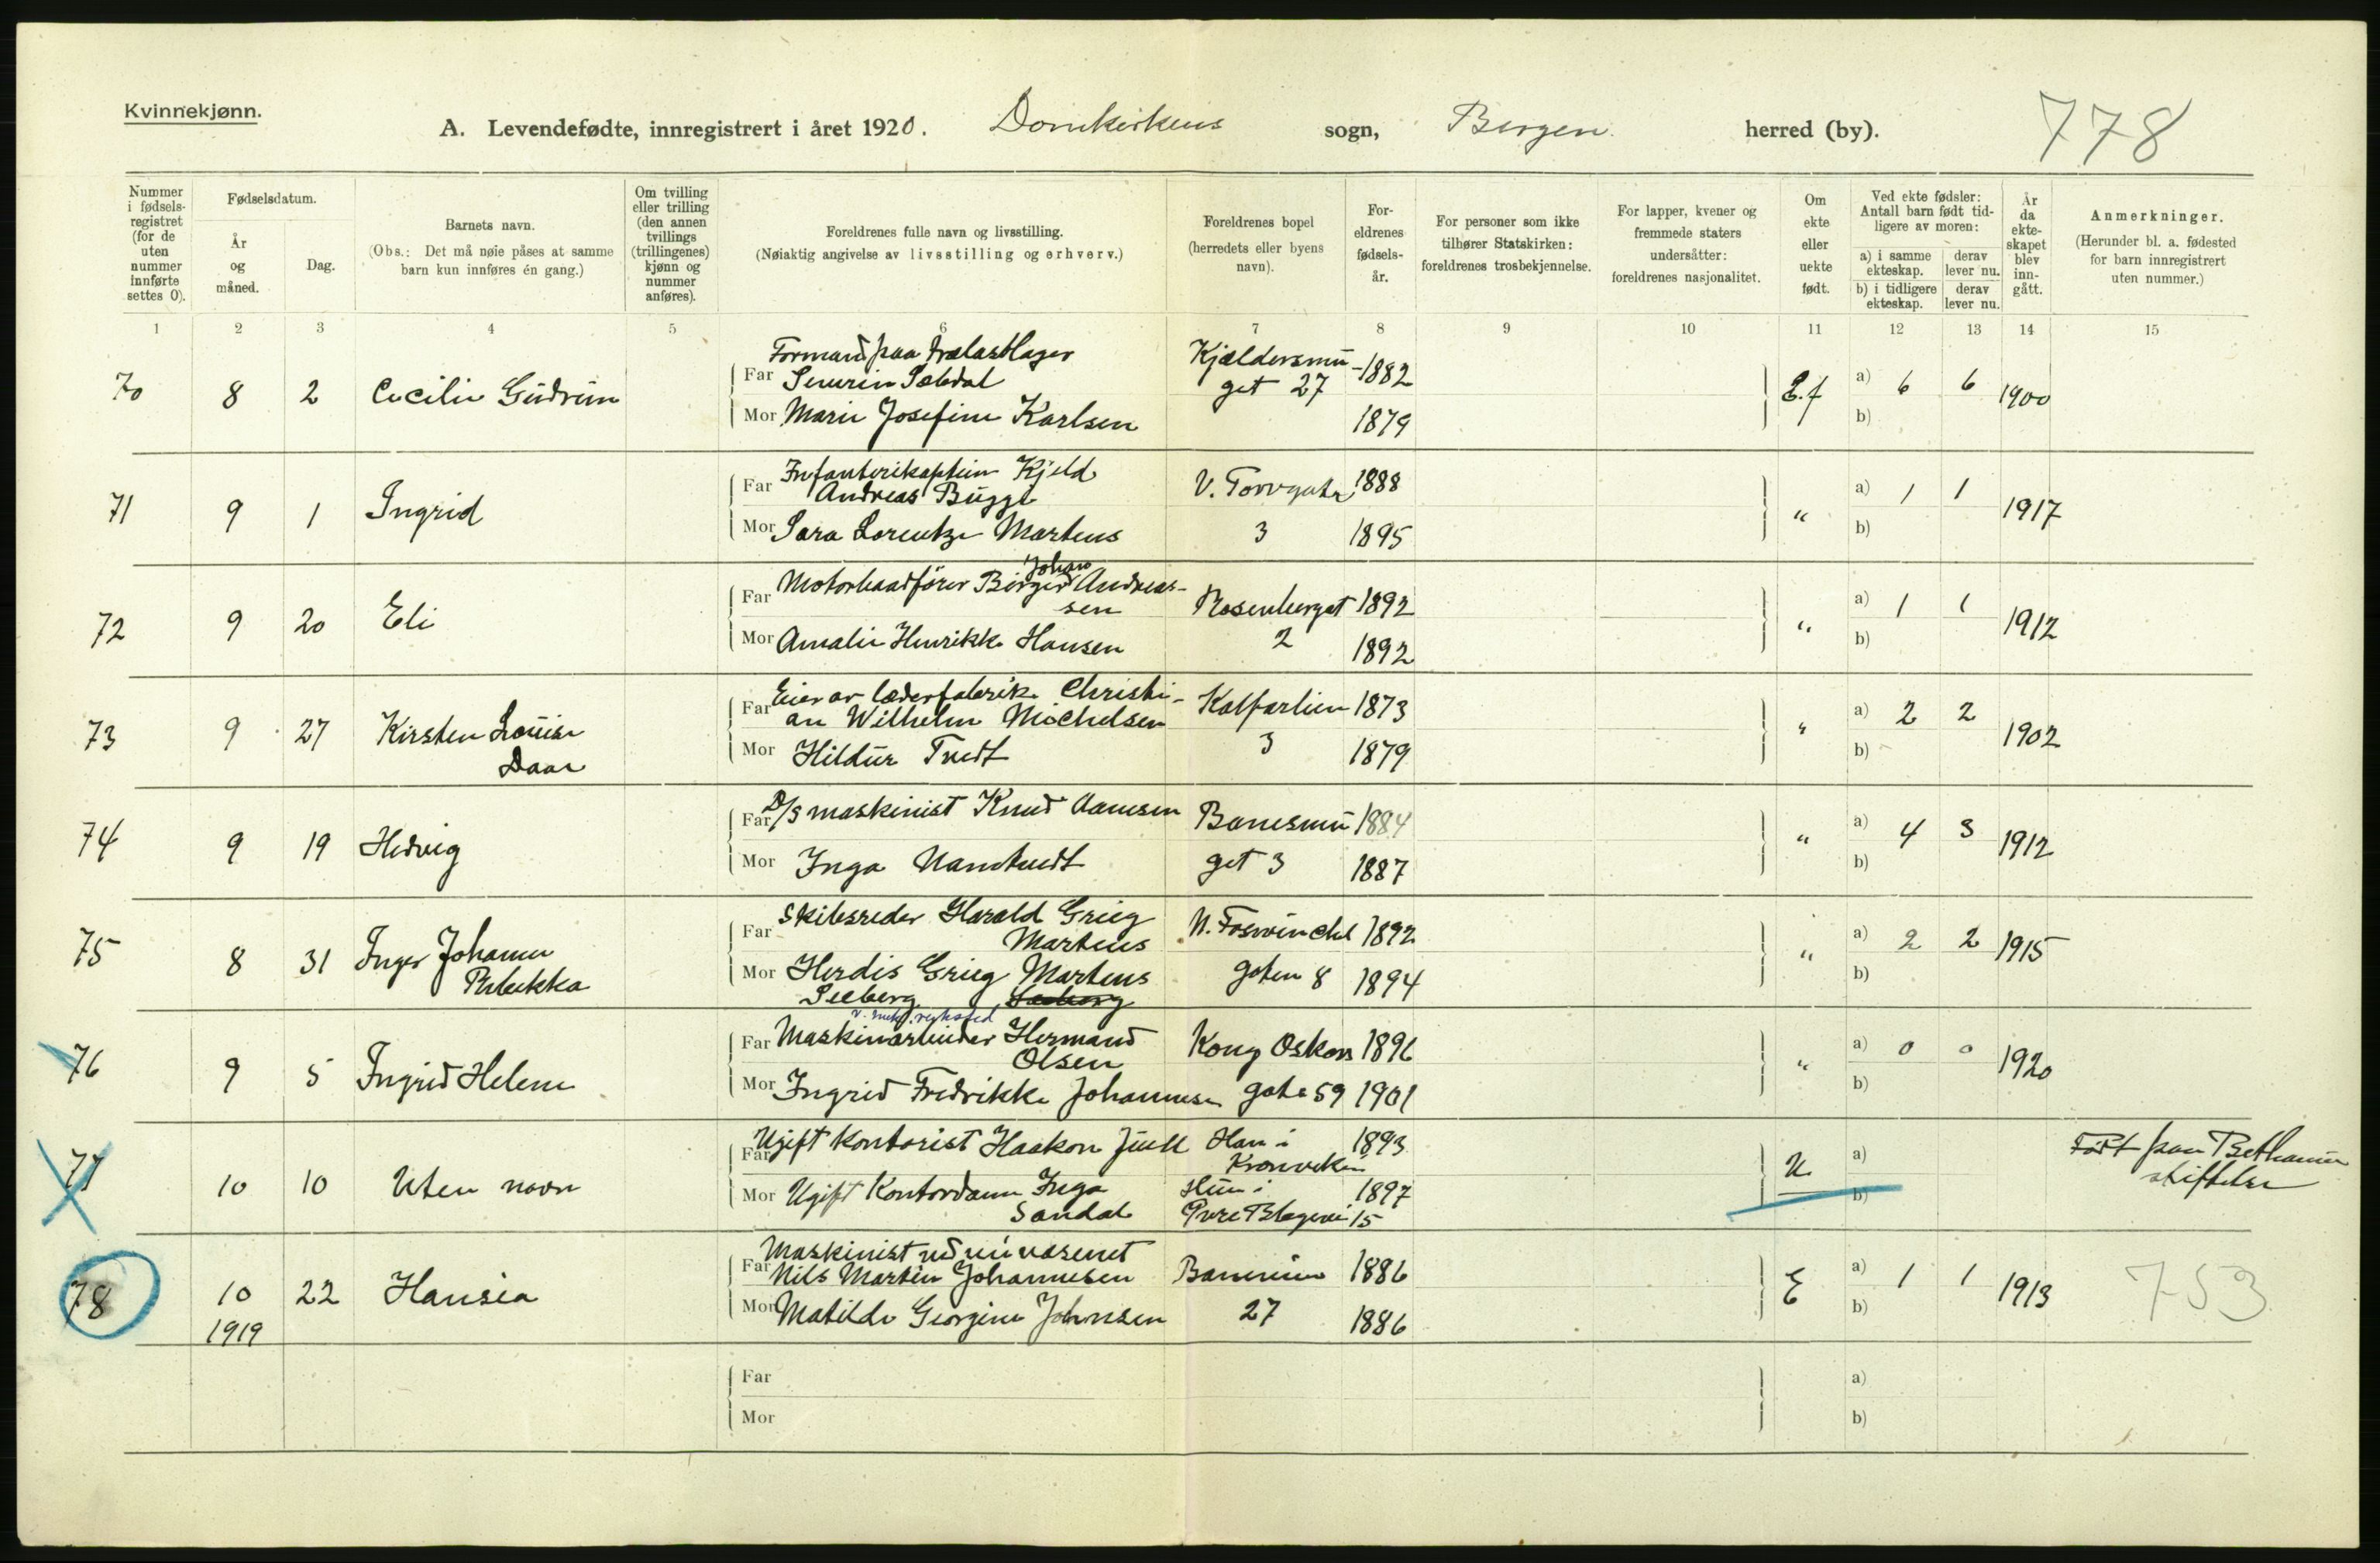 Kvinnekjønn.
A. Levendefødte, innregistrert i året 1920. Domkirkens sogn, Bergen herred (by). 778
Nummer i fødsels-registret (for de uten nummer innførte settes 0).
Fødselsdatum.
År og måned.
Dag.
Barnets navn.
(Obs.: Det må nøie påses at samme barn kun innføres én gang.)
Om tvilling eller trilling (den annen tvillings (trillingenes) kjønn og nummer anføres).
Foreldrenes fulle navn og livsstilling.
(Nøiaktig angivelse av livsstilling og erhverv.)
Foreldrenes bopel (herredets eller byens navn).
For-eldrenes fødsels-år.
For personer som ikke tilhører Statskirken: foreldrenes trosbekjennelse.
For lapper, kvener og fremmede staters undersåtter: foreldrenes nasjonalitet.
Om ekte eller uekte født.
Ved ekte fødsler: Antall barn født tid-ligere av moren:
a) i samme ekteskap.
derav lever nu.
b) i tidligere ekteskap.
derav lever nu.
År da ekte-skapet blev inn-gått.
Anmerkninger.
(Herunder bl. a. fødested for barn innregistrert uten nummer.)
1 2 3 4 5 6 7 8 9 10 11 12 13 14 15
Formand paa trælastlager Kjældersmu-
70 8 2 Cecilie Gudrun Far Severin Sæbdal get 27 1882 E.f a) 6 6 1900
Mor Marie Josefine Karlsen 1879 b)
Far Infanterikaptein Kjeld V. Torvgate 1888
71 9 1 Ingrid Andreas Bugge " a) 1 1 1917
Mor Sara Lorentze Martens 3 1895 b)
Johan
Far Motorbaadfører Birger Andreas-
72 9 20 Eli sen Rosenberget 1892 " a) 1 1 1912
Mor Amalie Henrikke Hansen 2 1892 b)
Far Eier av læderfabrik Christi- Kalfarlien 1873
73 9 27 Kirsten Louise an Wilhelm Michelsen " a) 2 2 1902
Daae Mor Hildur Tvedt 3 1879 b)
74 9 19 Hedvig Far D/S maskinist Knud Aamsen Banesmu 1884 " a) 4 3 1912
Mor Inga Namtvedt get 3 1887 b)
Far Skibsreder Harald Grieg N. Foswinckel 1892
75 8 31 Inger Johanne Martens " a) 2 2 1915
Rebekka Mor Herdis Grieg Martens gaten 8 1894 b)
Seeberg
v. mek. verksted
Far Maskinarbeider Hermand Kong Oskars 1896
76 9 5 Ingrid Helene Olsen " a) 0 0 1920
Mor Ingrid Fredrikke Johannesen gate 59 1901 b)
Far Ugift kontorist Haakon Juell Han i 1893 Født paa Bethanie
77 10 10 Uten navn Kronviken U a) stiftelse
Mor Ugift Kontordame Inga Hun i 1897
Sandal 15 b)
Maskinist
78 10 22 Hansia Far Nils Martin Johannesen 1886 E a) 1 1 1913 753
1919 Mor Matilde Georgine Johnsen 27 1886 b)
Far a)
Mor b)